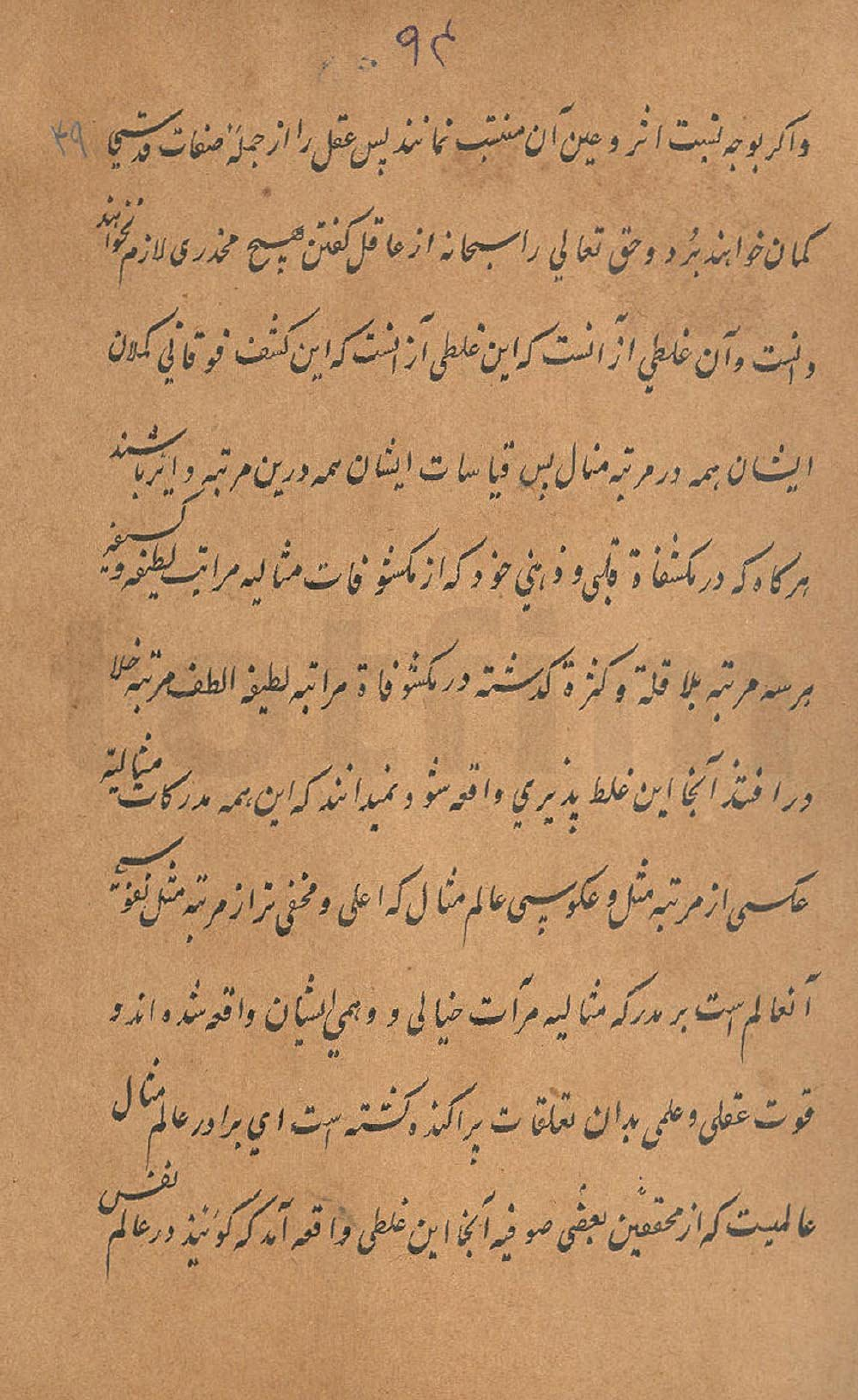 ۹۴
۴۹
واکر بوجه نسبت اثر و عین آن منتسب نمانند پس عقل را از جملهٔ صفات قد
کمان خواهند بُرد و حق تعالی را سبحانه از عاقل کفتن هیچ مخذری لازم نخواهند
دانست و آن غلطی ازآنست که این غلطی ازآنست که این کشف فوقانی کملان
ایشان همه در مرتبه مثال پس قیاسات ایشان همه درین مرتبه دائر باشند
هرکاه که در مکشفاة قلبی و ذهنی خود که از مکشوفات مثالیه مراتب لطیفه و کسیفه
هرسه مرتبه بلا قلة و کنزة کدشته در مکشوفاة مراتبه لطیفه الطف مرتبه خلا
در افتند آنجا این غلط پذیری واقعه شود نمیدانند که این همه مدرکات مثالیه
عکسی از مرتبه مثل و عکوسی عالم مثال که اعلی و مخفی تر از مرتبه مثل
آنعالم است بر مدرکه مثالیه مرآت خیالی و وهمی ایشان واقعه شده اند و
قوت عقلی و علمی بدان تعلقات پراکنده کشته است ای برادر عالم مثال
عالمیست که از محققین بعضی صوفیه آنجا این غلطی واقعه آمد که کوئیند در عالم نفس